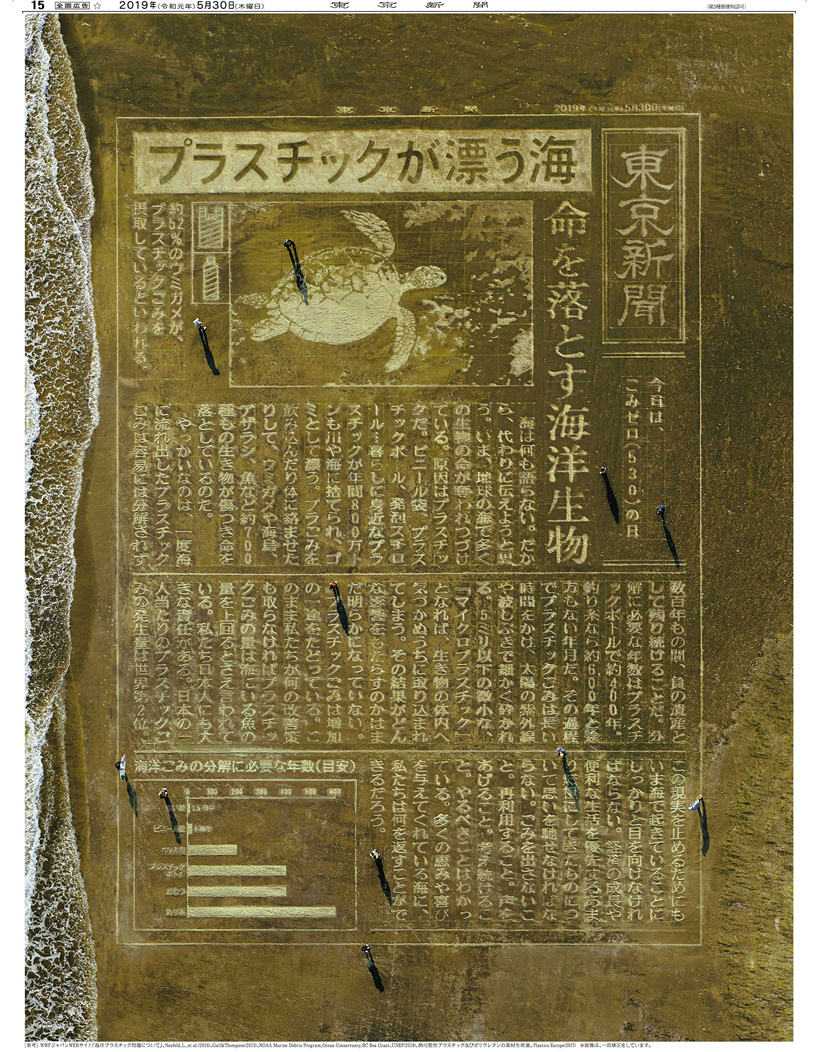 15 全面広告 ☆ 2019年(令和元年)5月30日(木曜日) 東京新聞
東京新聞 2019年(令和元年)5月30日(木曜日)
東京新聞
プラスチックが漂う海
命を落とす海洋生物
今日は、
ごみゼロ(530)の日
約52%のウミガメが、
プラスチックごみを
摂取しているといわれる。
海は何も語らない。だか
ら、代わりに伝えようと思
う。いま、地球の海で多く
の生物の命が奪われつづけ
ている。原因はプラスチッ
クだ。ビニール袋、プラス
チックボトル、発泡スチロ
ール…暮らしに身近なプラ
スチックが年間800万ト
ンも川や海に捨てられ、ゴ
ミとして漂う。プラごみを
飲み込んだり体に絡ませた
りして、ウミガメや海鳥、
アザラシ、魚など約700
種もの生き物が傷つき命を
落としているのだ。
やっかいなのは、一度海
に流れ出したプラスチック
ごみは容易には分解されず
数百年もの間、負の遺産と
して残り続けることだ。分
解に必要な年数はプラスチ
ックボトルで約400年。
釣り糸なら約600年と途
方もない年月だ。その過程
でプラスチックごみは長い
時間をかけ、太陽の紫外線
や波しぶきで細かく砕かれ
る。5ミリ以下の微小な、
「マイクロプラスチック」
となれば、生き物の体内へ
気づかぬうちに取り込まれ
てしまう。その結果がどん
な影響をもたらすのかはま
だ明らかになっていない。
プラスチックごみは増加
の一途をたどっている。こ
のまま私たちが何の改善策
も取らなければプラスチッ
クごみの量は海にいる魚の
量を上回るとさえ言われて
いる。私たち日本人にも大
きな責任がある。日本の一
人当たりのプラスチックご
みの発生量は世界第2位。
この現実を止めるためにも
いま海で起きていることに
しっかりと目を向けなけれ
ばならない。経済の成長や
便利な生活を優先するあま
り犠牲にしてきたものにつ
いて思いを馳せなければな
らない。ごみを出さないこ
と。再利用すること。声を
あげること。考え続けるこ
と。やるべきことはわかっ
ている。多くの恵みや喜び
を与えてくれている海に、
私たちは何を返すことがで
きるだろう。
海洋ごみの分解に必要な年数(目安)
0 100 200 300 400 500 600
プラスチックボトル
おむつ
釣り糸
[参考] WWFジャパンWEBサイト「海洋プラスチック問題について」、Neufeld,L.,et al.(2016)、Gall&Thompson(2015)、NOAA Marine Debris Program、Ocean Conservancy、SC Sea Grant、UNEP(2018)、熱可塑性プラスチック及びポリウレタンの素材生産量。Plastics Europe(2017) ※画像は、一部修正をしています。